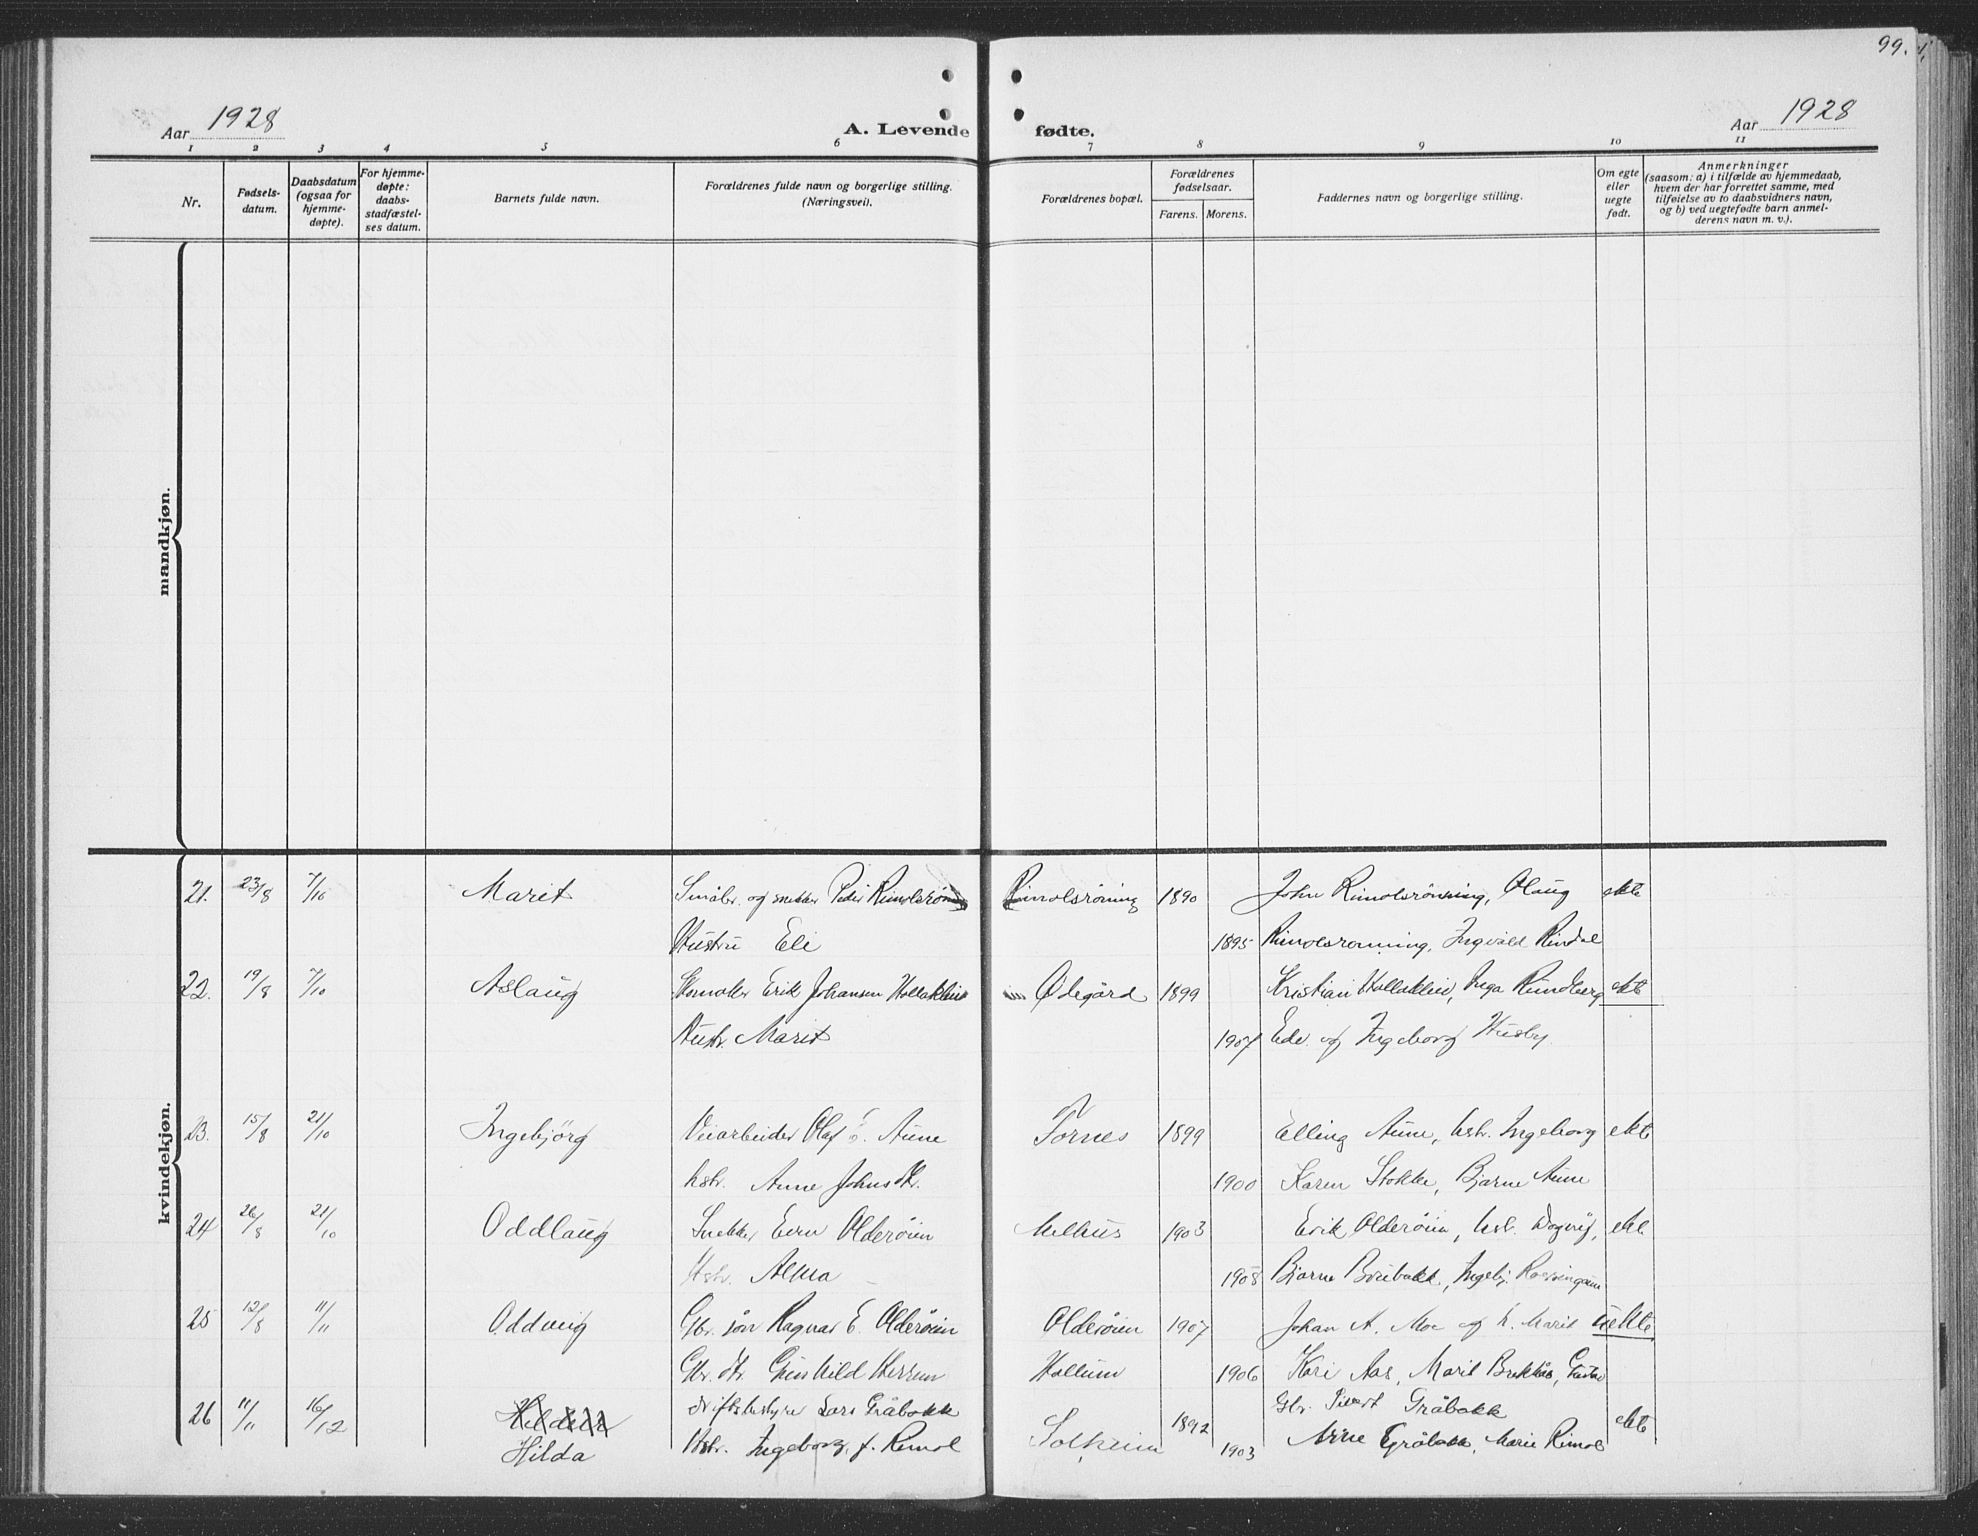 99.
Aar 1928
A. Levende fødte.
Aar 1928
1 2 3 4 5 6 7 8 9 10 11
Nr.
Fødsels-
datum.
Daabsdatum
(ogsaa for
hjemme-
døpte).
For hjemme-
døpte:
daabs-
stadfæstel-
ses datum.
Barnets fulde navn.
Forældrenes fulde navn og borgerlige stilling.
(Næringsvei).
Forældrenes bopæl.
Forældrenes
fødselsaar.
Farens. Morens.
Faddernes navn og borgerlige stilling.
Om egte
eller
uegte
født.
Anmerkninger
(saasom: a) i tilfælde av hjemmedaab,
hvem der har forrettet samme, med
tilføielse av to daabsvidners navn,
og b) ved uegtefødte barn anmel-
derens navn m. v.).
mandkjøn.
kvindekjøn.
21. 23/8 7/10 Marit Småbr. og snekker Peder Rimolsrønning Rimolsröning 1890 John Rimolsrönning, Olaug ekte
Hustru Eli 1895 Rimolsrönning, Ingvald Rindal
22. 19/8 7/10 Aslaug Skomaker Erik Johansen Hollaklein Ødegård 1899 Kristian Hollaklein, Inga Rundberg ekte
Hustr. Marit 1907 Edv. og Ingeborg Husby
23. 15/8 21/10 Ingebjörg Veiarbeider Olaf E. Aune Fornes 1899 Elling Aune, hstr. Ingeborg ekte
hstr. Anne Johnsdtr. 1900 Karen Stokke, Bjarne Aune
24 26/8 21/10 Oddlaug Snekker Even Olderöien Melhus 1903 Erik Olderöien, hst. Dagny, ekte
Hstr. Alma 1908 Bjarne Brubakk, Ingebj.
25 12/8 11/11 Oddveig Gbr. sön Ragnar E. Olderöien Olderöien 1907 Johan A. Moe og h. Marit uekte
Gbr. dtr. Gunhild Herrem Hollum 1906 Kari Aas, Marit Brekkås,
26 11/11 16/12 driftsbestyrer Lars Gråbakk Solheim 1892 Gbr. Sivert Gråbakk ekte
Hilda Hstr. Ingeborg f. Rimol 1903 Arne Gråbakk, Marie Rimol